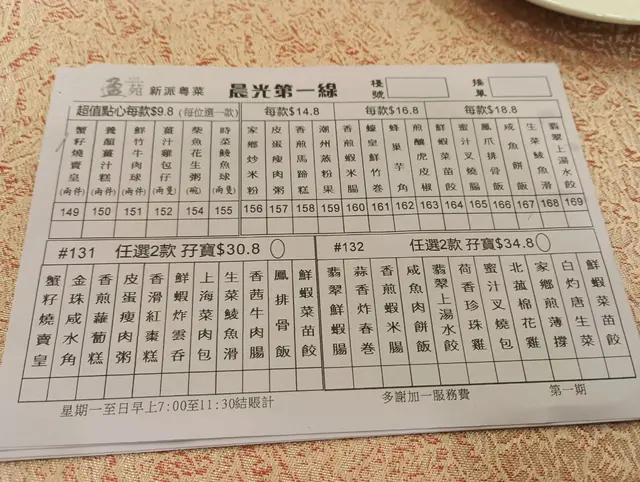 盈苑 新派粵菜 晨光第一線 檯號 接單
超值點心每款$9.8 (每位選一款) 每款$14.8 每款$16.8 每款$18.8
蟹籽燒賣皇(兩件)
養顏薑汁糕(兩件)
鮮竹牛肉球(兩件)
薑汁雞包仔(兩隻)
柴魚花生粥(碗)
時菜鯪魚球(兩隻)
家鄉炒米粉
皮蛋瘦肉粥
香煎馬蹄糕
潮州蒸粉果
香煎蝦米腸
蠔皇鮮竹卷
蜂巢芋角
煎釀虎皮椒
鮮蝦菜苗餃
蜜汁叉燒腸
鳳爪排骨飯
咸魚肉餅飯
生菜鯪魚滑
翡翠上湯水餃
149 150 151 152 154 155 156 157 158 159 160 161 162 163 164 165 166 167 168 169
#131 任選2款 孖寶$30.8 #132 任選2款 孖寶$34.8
蟹籽燒賣皇
金珠咸水角
香煎蘿蔔糕
皮蛋瘦肉粥
香滑紅棗糕
鮮蝦炸雲吞
上海菜肉包
生菜鯪魚滑
香茜牛肉腸
鳳排骨飯
鮮蝦菜苗餃
翡翠鮮蝦腸
蒜香炸春卷
香煎蝦米腸
咸魚肉餅飯
翡翠上湯水餃
荷香珍珠雞
蜜汁叉燒包
北菰棉花雞
家鄉煎薄撐
白灼唐生菜
鮮蝦菜苗餃
星期一至日早上7:00至11:30結賬計 多謝加一服務費 第一期